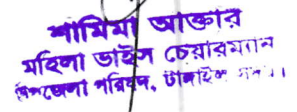 শামিমা আক্তার
মহিলা ভাইস চেয়ারম্যান
উপজেলা পরিষদ, টাঙ্গাইল সদর।